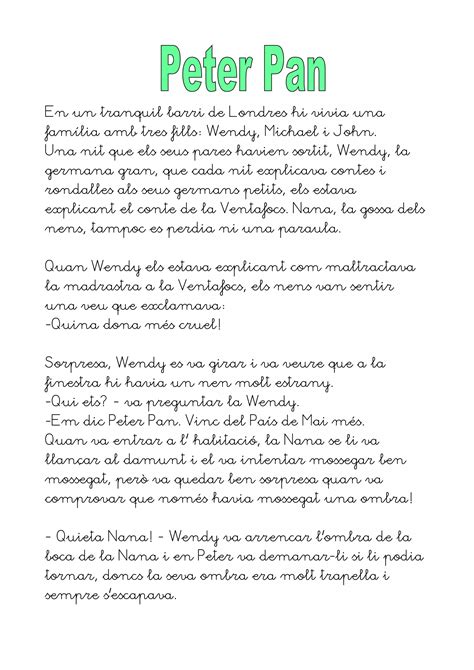 Peter Pan
En un tranquil barri de Londres hi vivia una
família amb tres fills: Wendy, Michael i John.
Una nit que els seus pares havien sortit, Wendy, la
germana gran, que cada nit explicava contes i
rondalles als seus germans petits, els estava
explicant el conte de la Ventafocs. Nana, la gossa dels
nens, tampoc es perdia ni una paraula.
Quan Wendy els estava explicant com maltractava
la madrastra a la Ventafocs, els nens van sentir
una veu que exclamava:
-Quina dona més cruel!
Sorpresa, Wendy es va girar i va veure que a la
finestra hi havia un nen molt estrany.
-Qui ets? - va preguntar la Wendy.
-Em dic Peter Pan. Vinc del País de Mai més.
Quan va entrar a l' habitació, la Nana se li va
llançar al damunt i el va intentar mossegar ben
mossegat, però va quedar ben sorpresa quan va
comprovar que només havia mossegat una ombra!
- Quieta Nana! - Wendy va arrencar l'ombra de la
boca de la Nana i en Peter va demanar-li si li podia
tornar, doncs la seva ombra era molt trapella i
sempre s'escapava.